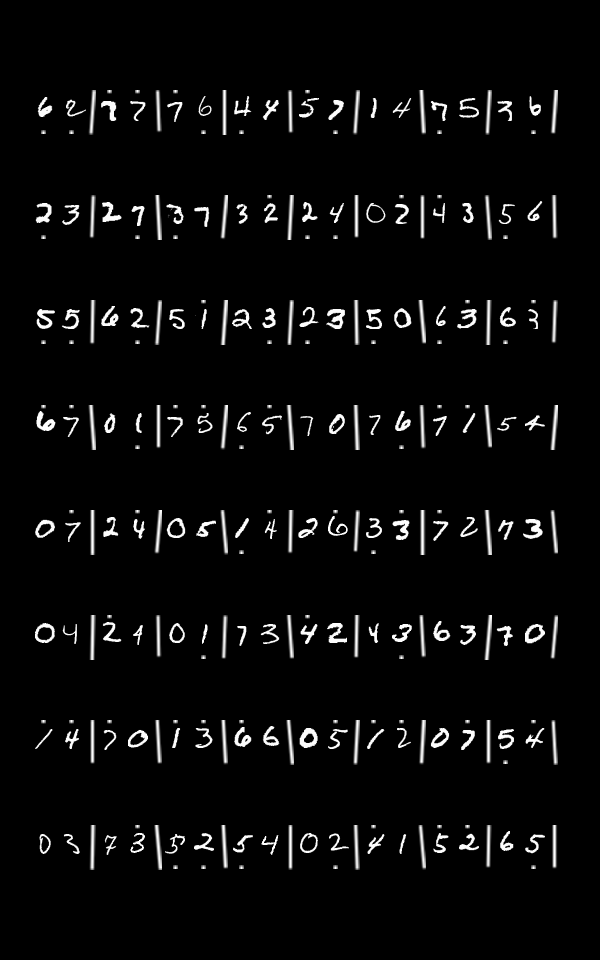 6̣ 2 | 7̇ 7̇ | 7̇ 6̣ | 4̣ 4 | 5̇ 7̣ | 1 4 | 7̣ 5 | 3 6̣ |
2̣ 3 | 2 7̣ | 3̣ 7 | 3 2̇ | 2̣ 4̣ | 0 2̇ | 4̇ 3 | 5̣ 6 |
5̣ 5̣ | 6 2̣ | 5 1̇ | 2 3̣ | 2̣ 3 | 5̣ 0 | 6̣ 3̇ | 6̣ 3̇ |
6̇ 7̇ | 0 1̣ | 7̇ 5̇ | 6̣ 5̇ | 7 0 | 7 6̣ | 7̇ 1̇ | 5 4 |
0 7̇ | 2̇ 4̇ | 0 5 | 1̣ 4̇ | 2 6 | 3̣ 3̇ | 7̇ 2 | 7 3 |
0 4 | 2̇ 4 | 0 1̣ | 7 3 | 4̇ 2 | 4 3̣ | 6 3 | 7 0 |
1̇ 4̇ | 7̇ 0 | 1̇ 3̇ | 6̇ 6 | 0 5̇ | 1̇ 2̇ | 0 7̇ | 5̣ 4̇ |
0 3 | 7 3̇ | 5̣ 2̣ | 5̣ 4 | 0 2 | 4̇ 1 | 5̇ 2̇ | 6 5̣ |